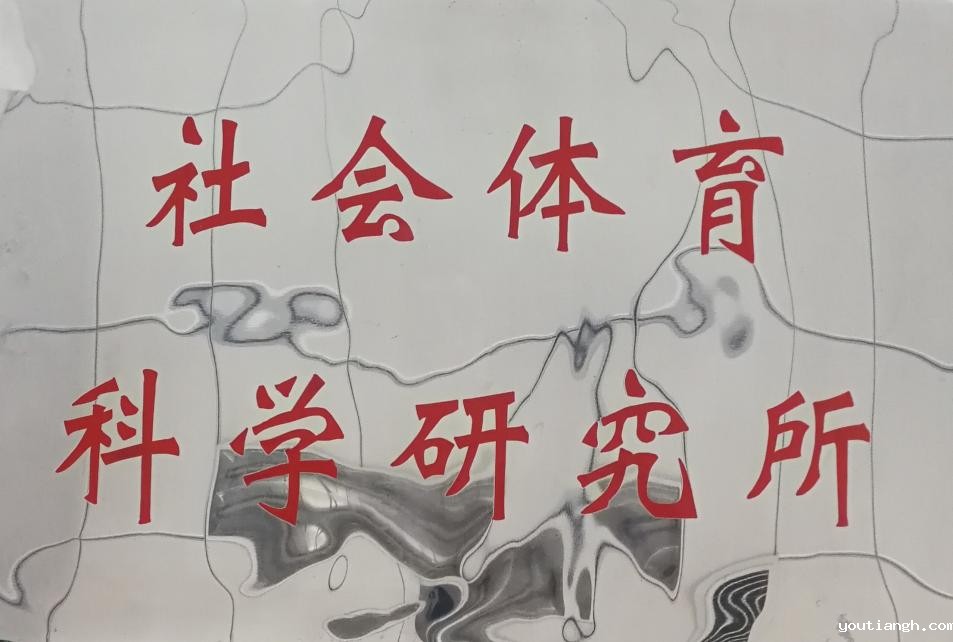 社会体育
科学研究所
youtiangh.com